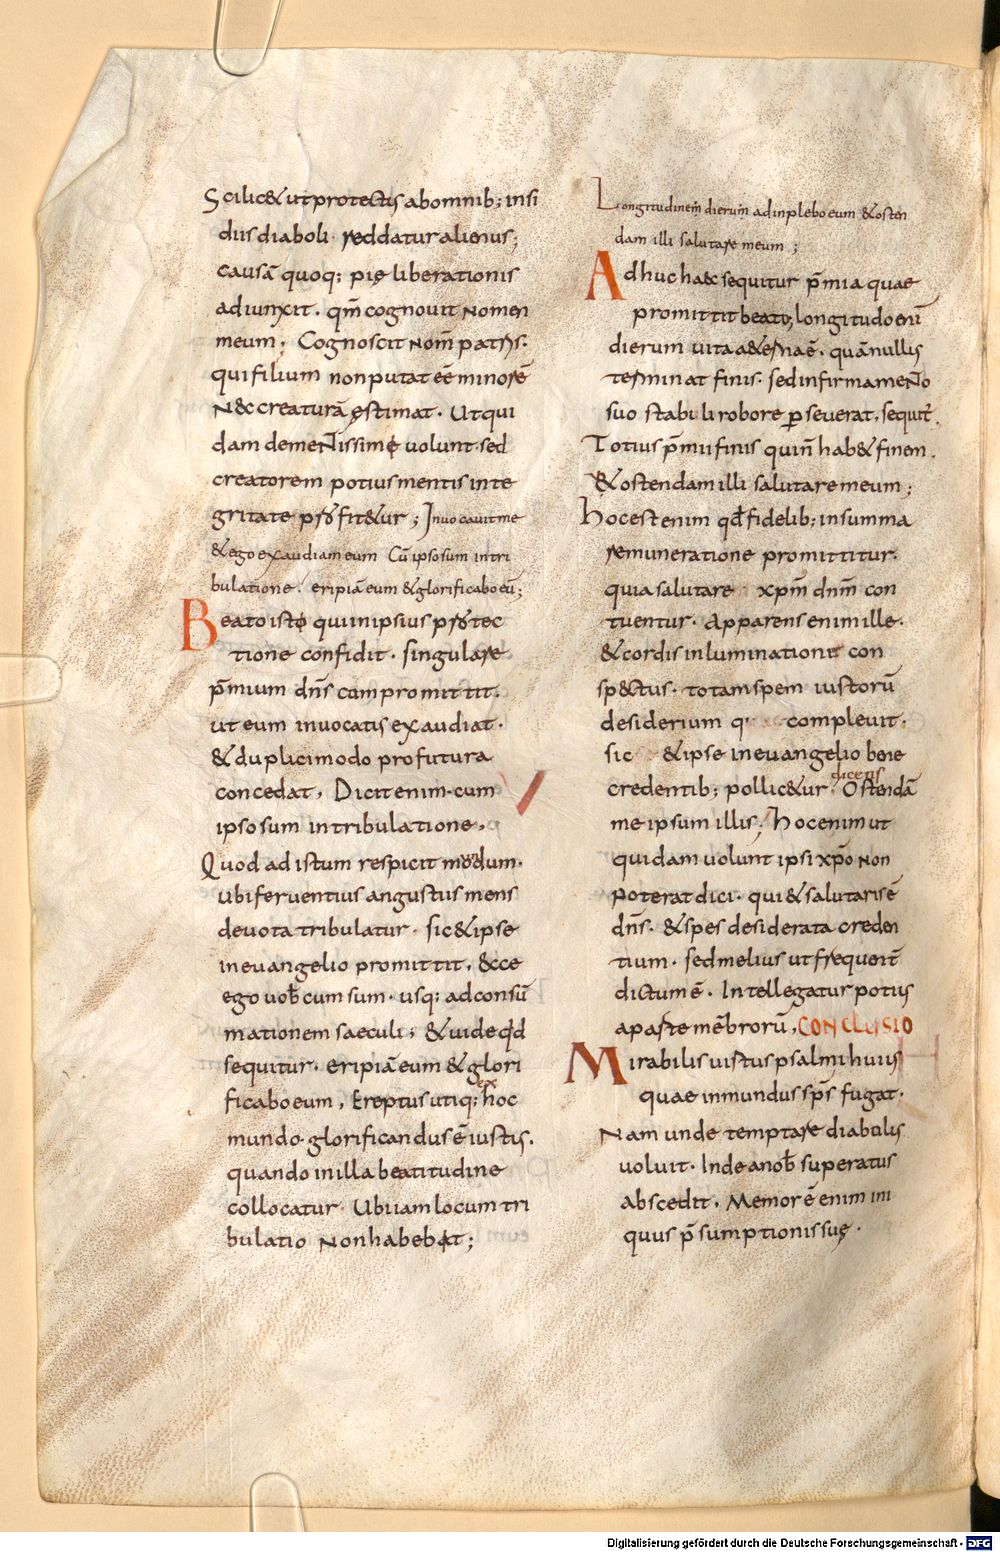 Scilic& ut protectus ab omnib; insi
diis diaboli reddatur alienus;
causā quoq; pię liberationis
adiunxit. qm̄ cognouit nomen
meum; Cognoscit nom̄ patris.
qui filium non putat eē minorē
nec creaturā ęstimat. Ut qui
dam dementissimę uolunt. sed
creatorem potius mentis inte
gritate profit&ur; Inuocauit me
& ego exaudiam eum Cū ipso sum in tri
bulatione. eripiā eum & glorificabo eū;
Beato isto qui in ipsius protec
tione confidit. singulare
p̄mium dn̄s compromittit.
ut eum inuocatus exaudiat.
& duplici modo profutura
concedat, Dicit enim. cum
ipso sum in tribulatione,
Quod ad istum respicit modum.
ubi feruentius angustus mens
deuota tribulatur. sic & ipse
in euangelio promittit, ecce
ego uob̄ cum sum. usq; ad consū
mationem saeculi; & uide qđ
sequitur. eripiā eum & glori
ficabo eum, Ereptus utiq; ex hoc
mundo. glorificandus ē iustis.
quando in illa beatitudine
collocatur. Ubi iam locum tri
bulatio non habebat;
Longitudinem dierum adinplebo eum & osten
dam illi salutare meum;
Adhuc haec sequitur p̄mia quae
promittit beatus, longitudo eni
dierum uita aeternae. quā nullus
terminat finis. sed in firmamento
suo stabili robore perseuerat, sequit̄.
Totius p̄mii finis qui n̄ hab& finem.
& ostendam illi salutare meum;
hoc est enim qđ fidelib; in summa
remuneratione promittitur.
quia salutare xpm̄ dnm̄ con
tuentur. Apparens enim ille.
& cordis inluminationu con
sp&tus. totam spem iustorū
desiderium q; compleuit.
sic & ipse in euangelio bene
credentib; pollic&ur. dicens Ostendā
me ipsum illis; hoc enim ut
quidam uolunt ipsi xpo non
poterat dici. qui & salutaris ē
dn̄s. & spes desiderata creden
tium. sed melius ut frequent̄
dictum ē. Intellegatur potius
a parte mēbrorū, CONCLUSIO
Mirabilis uirtus psalmi huius
quae inmundus sps̄ fugat.
Nam unde temptare diabolus
uoluit. Inde a nob̄ superatus
abscedit. Memor ē enim ini
quus p̄sumptionis suę.
Digitalisierung gefördert durch die Deutsche Forschungsgemeinschaft - DFG